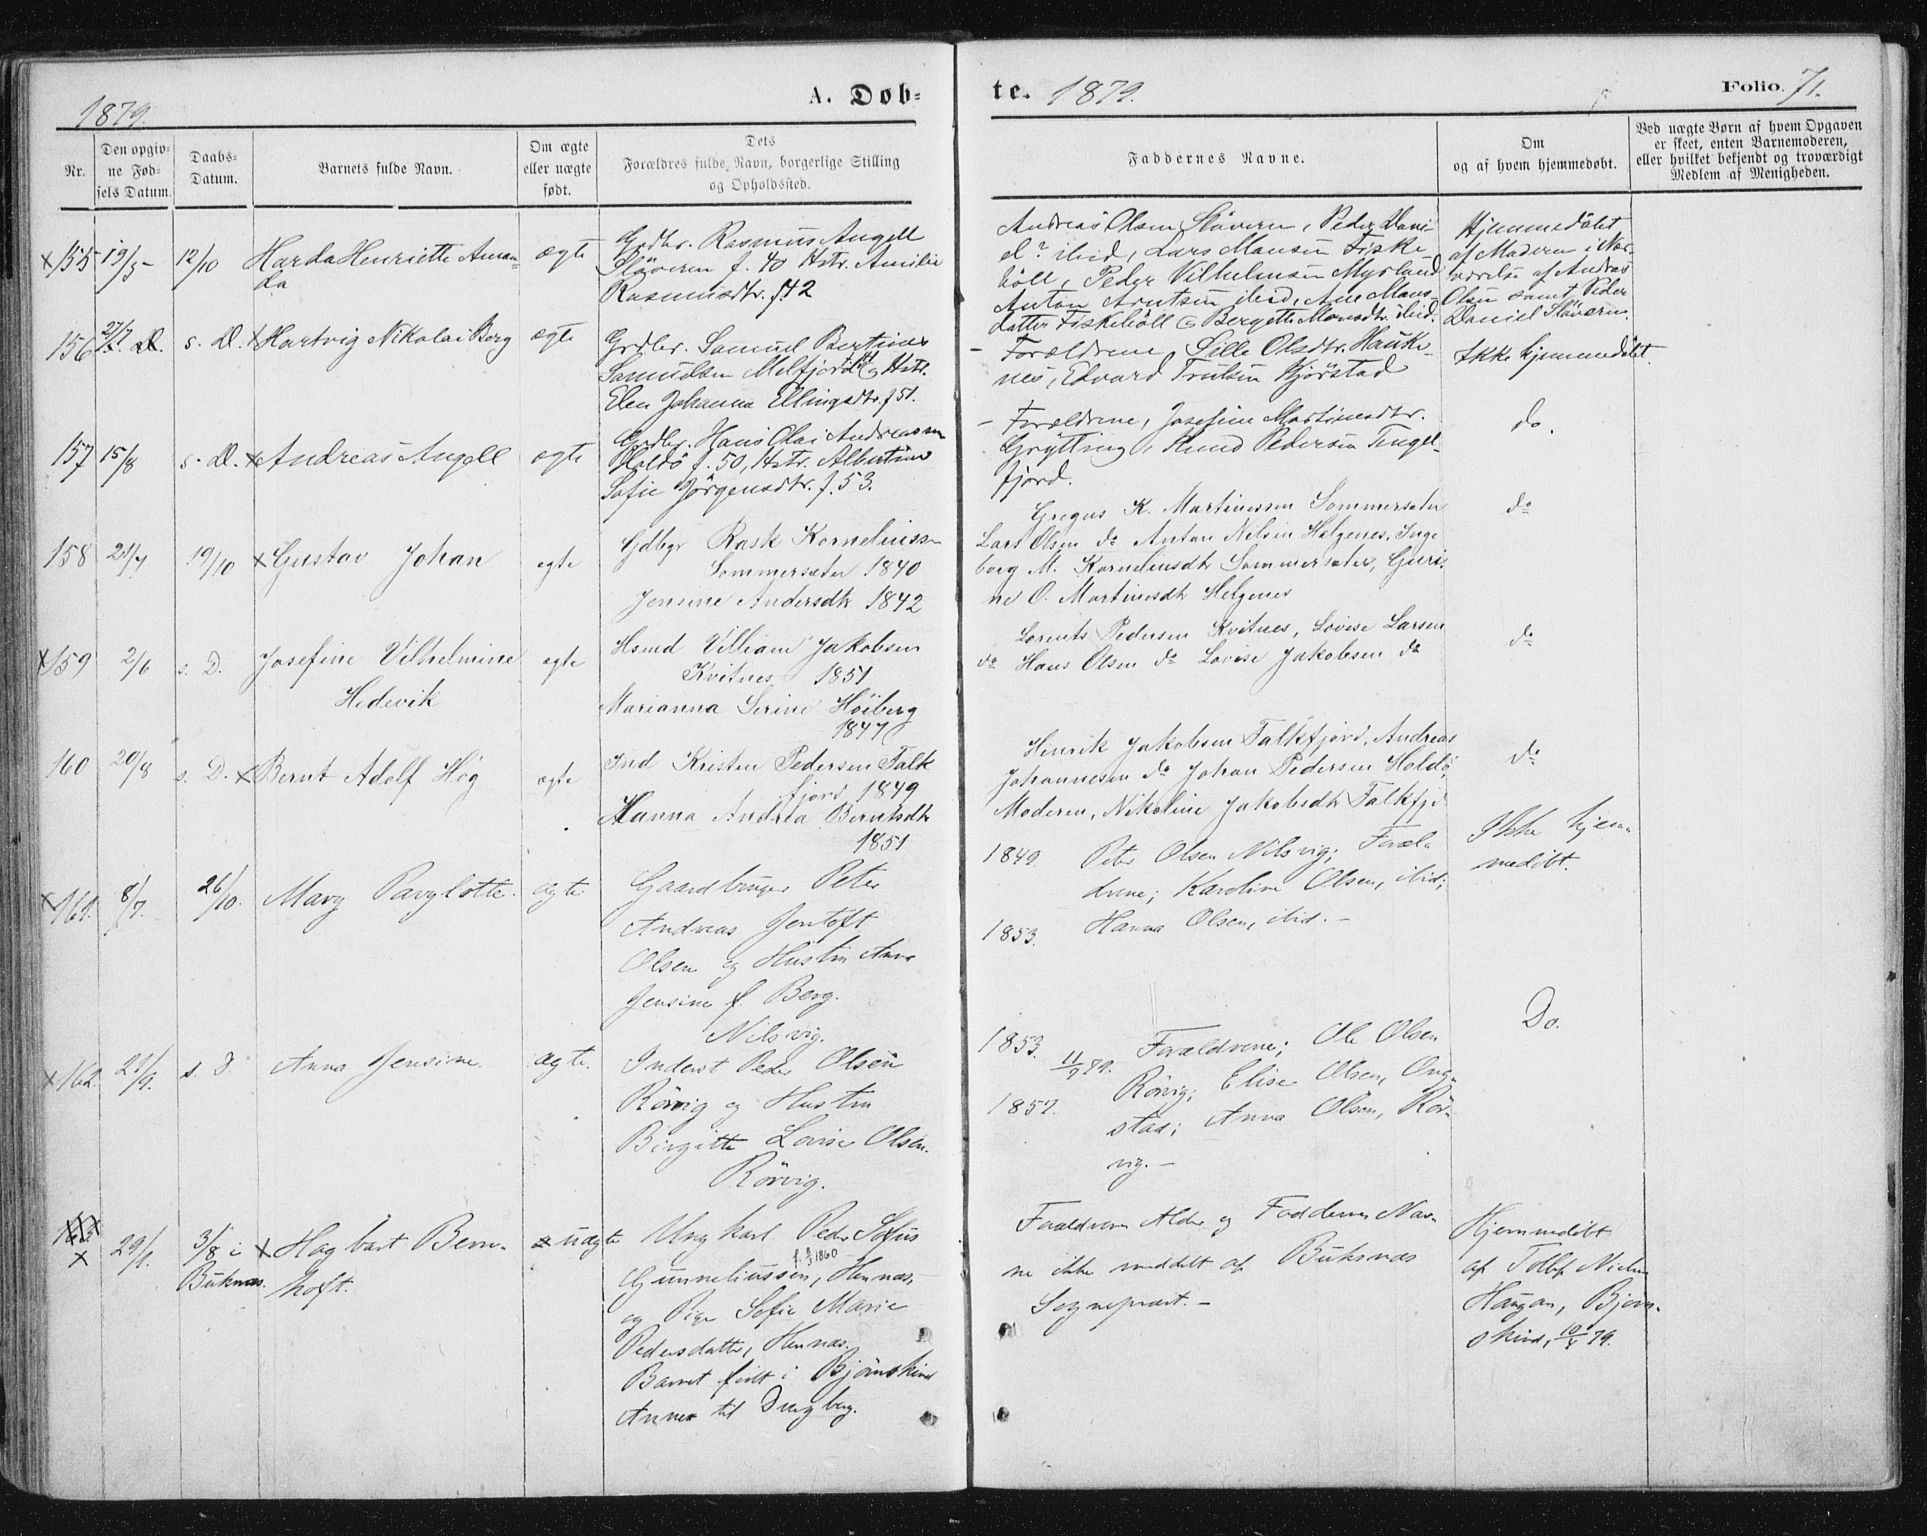 1879.
A. Døb-
te. 1879.
Folio. 71.
Nr.
Den opgiv-
ne Fød-
sels Datum.
Daabs-
Datum.
Barnets fulde Navn.
Om ægte
eller uægte
født.
Dets
Forældres fulde Navn, borgerlige Stilling
og Opholdssted.
Faddernes Navne.
Om
og af hvem hjemmedøbt.
Ved uægte Børn af hvem Opgaven
er skeet, enten Barnemoderen,
eller hvilket bekjendt og troværdigt
Medlem af Menigheden.
x 155 19/5 12/10 Harda Henriette Aman-
da
ægte
Grdbr. Rasmus Angell
Slåveren f. 40 Hstr. Amilie
Rasmusdtr. f 42
Andreas Olsen Slåveren, Peder Dani-
el ? ibid, Lars Monsen Fiske-
böll, Peder Vilhelmsen Myrland
Anton Arntsen ibid, Ane Mons-
datter Fiskeböll & Bergette Monsdtr. ibid.
Hjemmedöbt
af Moderen i Nær-
værelse af Andreas
Olsen samt Peder
Daniel Slåveren.
156 27/7 s. D. x Hartvig Nikolai Berg ægte
Grdbr. Samuel Bertines
Samuelsen Melfjord & Hstr.
Elen Johanna Ellingsdtr. f 51.
- Forældrene, Sille Olsdtr. Hauke-
nes, Edvard Trulsen Kjörstad
Ikke hjemmedöbt.
157 15/8 s. D. x Andreas Angell ægte
Grdbr. Hans Olai Andreassen
Holdö f. 50, Hstr. Albertine
Sofie Jörgensdtr. f. 53.
- Forældrene, Josefine Martinusdtr.
Grytting, Knud Pedersen Tengel-
fjord.
do.
158 21/7 19/10 x Gustav Johan ægte
Gdbgr Rask Korneliussen
Sommersæter 1840
Jensine Andersdtr 1842
Gregus K. Martinussen Sommersæter
Lars Olsen do Anton Nilsen Helgenes, Inge
borg M. Korneliusdtr Sommersæter, Guri-
ne O. Martinusdtr Helgenes
do
x 159 2/6 s. D. Josefine Vilhelmine
Hedevik
ægte
Hsmd Villiam Jakobsen
Kvitnes 1851
Marianna Serine Höiberg
1847
Lorents Pedersen Kvitnes, Lovise Larsen
do Hans Olsen do Lovise Jakobsen do
do
160 20/8 s. D. x Bernt Adolf Hög ægte
Ind Kristen Pedersen Falk
fjord 1849
Hanna Andrea Berntsdtr
1851
Henrik Jakobsen Falkfjord, Andreas
Johannesen do Johan Pedersen Holdö,
Moderen, Nikoline Jakobsdtr Falkfjd
do
x 161. 8/7. 26/10. Mary Parylotte. ægte.
Gaardbruger Peter
Andreas Jentoft
Olsen og Hustru Anne
Jensine f. Berg.
Nilsvig.
1849. Peter Olsen Nilsvig; Foræl-
drene; Karoline Olsen, ibid;
1853. Hanna Olsen, ibid. -
Ikke hjem-
medöbt.
x 162. 21/9. s. D. Anna Jensine. ægte.
Inderst Peder Olsen
Rörvig og Hustru
Birgitte Lovise Olsen.
Rörvig.
1853. 11/9 79. Forældrene; Ole Olsen
Rörvig; Elise Olsen, Ong-
1857. stad; Anna Olsen, Rör-
vig. -
Do.
163 x 29/1. 3/8 i
Buknæs.
x Hagbart Bern-
hoft.
uægte
Ungkarl Peder Sofus
f. 8/3 1860
Gunneliussen, Hennæs.
og Pige Sofie Marie
Pedersdatter, Hennæs.
Barnet födt i Bjönskind
Annex til Dvergberg.
Forældrenes Alder og Faddernes Nav-
ne ikke meddelt af Buksnæs
Sognepræst. -
Hjemmedöbt
af Tollef Nielsen
Haugan, Bjørn-
skind, 10/4 79.